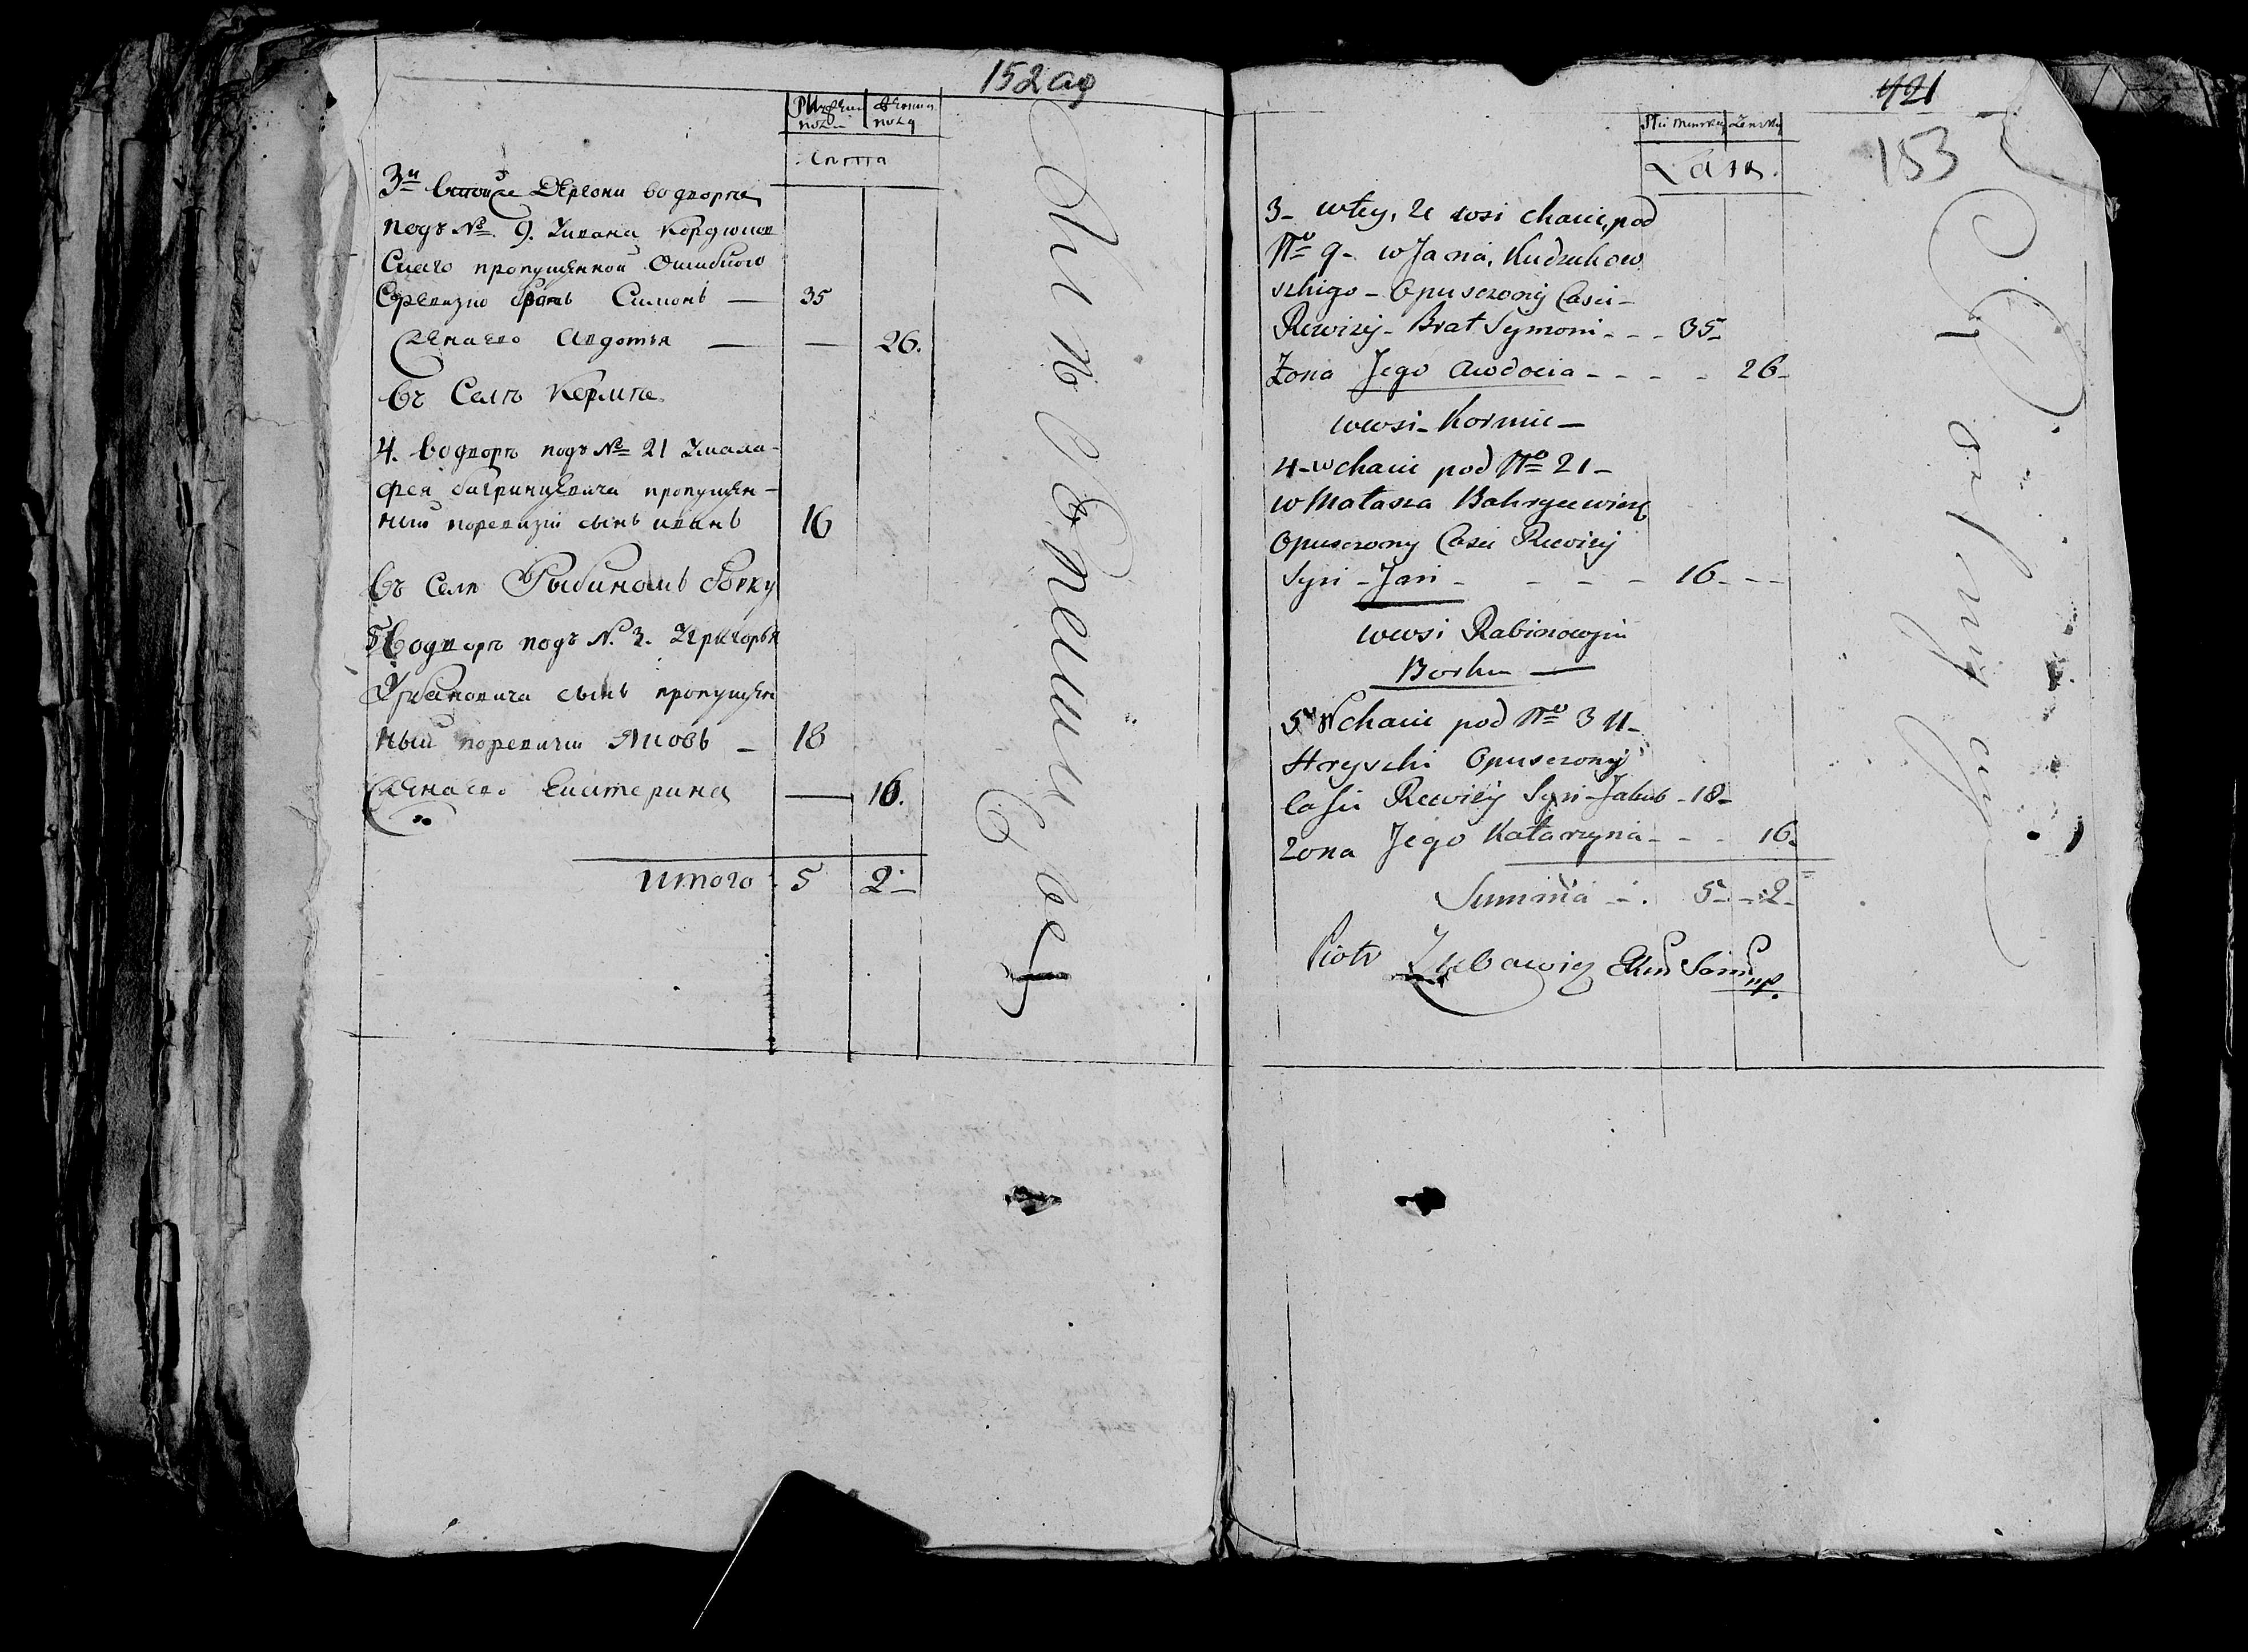 152 аф
Мужска
пола
Женска
пола
Лѣта
3и втойже Деревни во дворѣ
подъ № 9. Уивана Кордюков
Скаго пропущенной Ошибкою
Среѣвизіи братъ Симонъ — 35
Жена его Авдотья — — 26.
Въ Селѣ Кормѣ
4. Водворѣ подъ № 21 Умала-
фея багринцевича пропущен-
ный поревизіи сынъ иванъ 16
Въ Селѣ Рыбиномъ борку
5 Водворѣ подъ №. 3. Угригорья
Урбановича сынъ пропущен
ный поревизіи Яковъ — 18
Жена его Екатерина — 16.
итого 5 2
421
153
Płci Menskiej
Zenskiej
Lata.
3- wtey, że wsi chacie, pod
No 9- w Jana, Kudzukow
skiego - Opusczony Casu
Rewizij - Brat Symon - - - 35-
Żona Jego Awdocia - - - - 26-
wwsi - Kormie —
4 - wchacie pod No 21 -
w Małasza Bahrycewicz
Opusczony Casu Rewizij
Syn - Jan - - - - 16 - - -
wwsi Rabinowym
Borku —
5 Wchacie pod No 3 U-
Hryszki Opusczony
Casu Rewizij Syn - Jakub - 18-
żona Jego Katarzyna - - - 16-
Summa - - . 5 - - 2-
Piotr Zubowicz